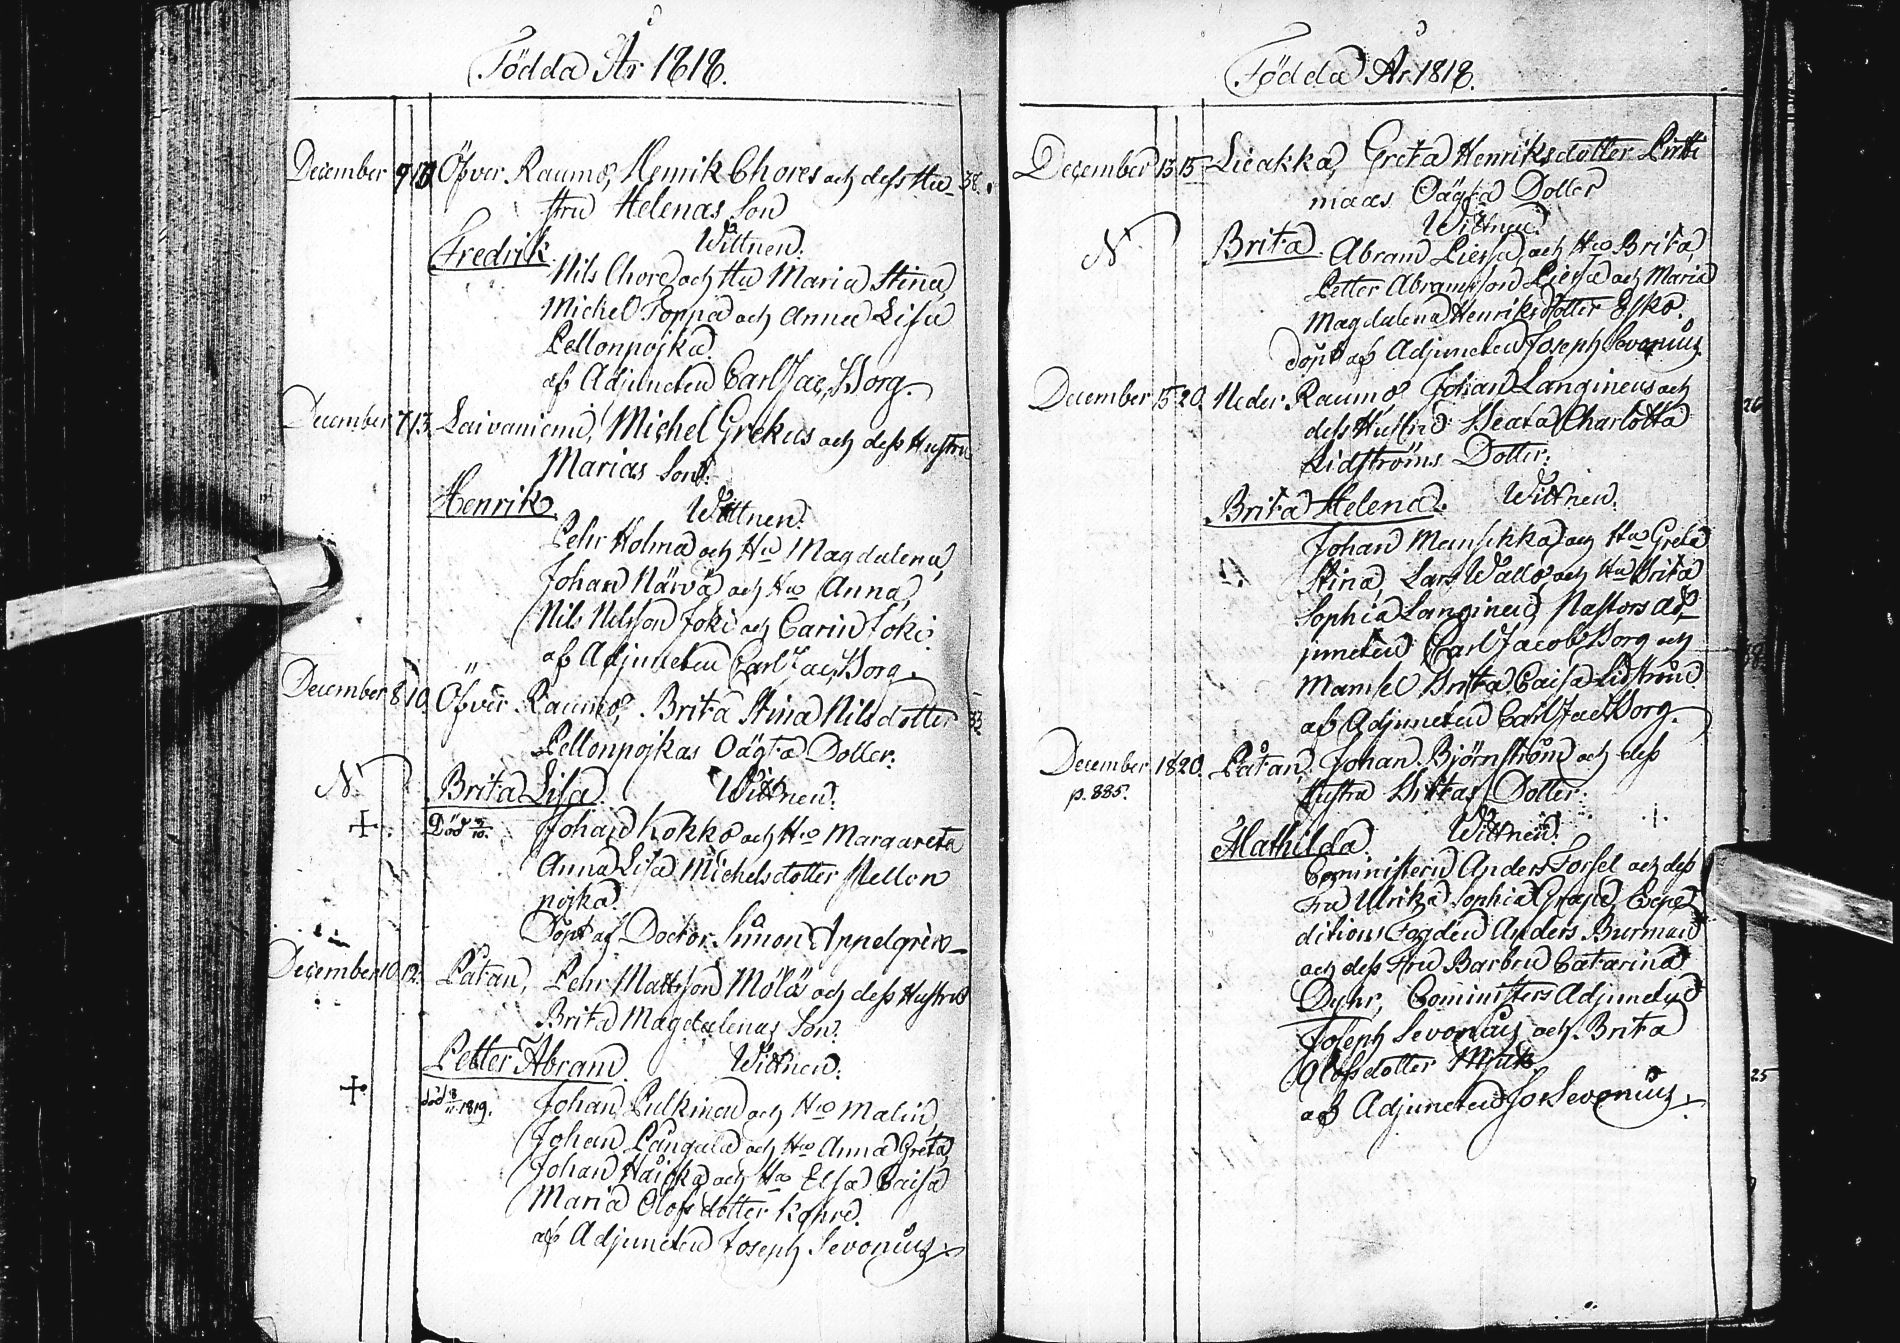 Födda År 1818.
December 9 13 Öfver Raumo, Henrik Chores och dess Hu- 38.
stru Helenas Son
Fredrik. Wittnen:
Nils Chore och Hu Maria Stina,
Michel Poppa och Anna Lisa
Pellonpojka.
af Adjuncten Carl Jac. Borg.
December 7 13. Laivaniemi, Michel Grekus och dess Hustru
Marias Son:
Henrik Wittnen:
Pehr Holma och Hu Magdalena,
Johan Närvä och Hu Anna,
Nils Nilsson Joki och Carin Joki.
af Adjuncten Carl Jac. Borg.
December 8 10. Öfver Raumo, Brita Stina Nilsdotter 33
Pellonpojkas Oägta Dotter:
N. Brita Lisa Wittnen:
Död Johan Kokko och Hu Margareta
Anna Lisa Michelsdotter Pellon
pojka.
Döpt af Doctor Simon Appelgren
December 10 12. Påtan, Pehr Mattsson Mölös och dess Hustru
Brita Magdalenas Son:
Petter Abram. Wittnen:
död 1819. Johan Pulkinen och Hu Malin,
Johan Långala och Hu Anna Greta,
Johan och Hu Elsa Caisa
Maria Olofsdotter
af Adjuncten Joseph Sevonius.
Födda År 1818.
December 13 15 Lieakka, Greta Henriksdotter
maas Oägta Dotter
Wittnen:
N Brita Abram och Hu Brita,
Petter Abramsson och Maria
Magdalena Henriksdotter Esko.
döpt af Adjuncten Joseph Sevonius
December 15 20. Neder Raumo, Johan Langinen och 26
dess Hustru Beata Charlotta
Lidströms Dotter:
Brita Helena. Wittnen:
Johan Mansikka och Hu Greta
N Stina, Lars Wallo och Hu Brita
Sophia Langinen, Pastors Ad-
juncten Carl Jacob Borg och
Mamsel Brita Caisa Lidström
af Adjuncten Carl Jac. Borg.
December 18 20. Påtan, Johan Björnström och dess
p. 885. Hustru Dottter:
Mathilda Wittnen:
Cominister Anders Forsel och dess
Fru Ulrika Sophia Grape, Expe-
ditions Fogden Anders Burman
och dess Fru Barbru Catarina
Dyhr, Coministers Adjuncten
Joseph Sevonius och Brita
Olofsdotter
25
af Adjuncten Jos Sevonius.